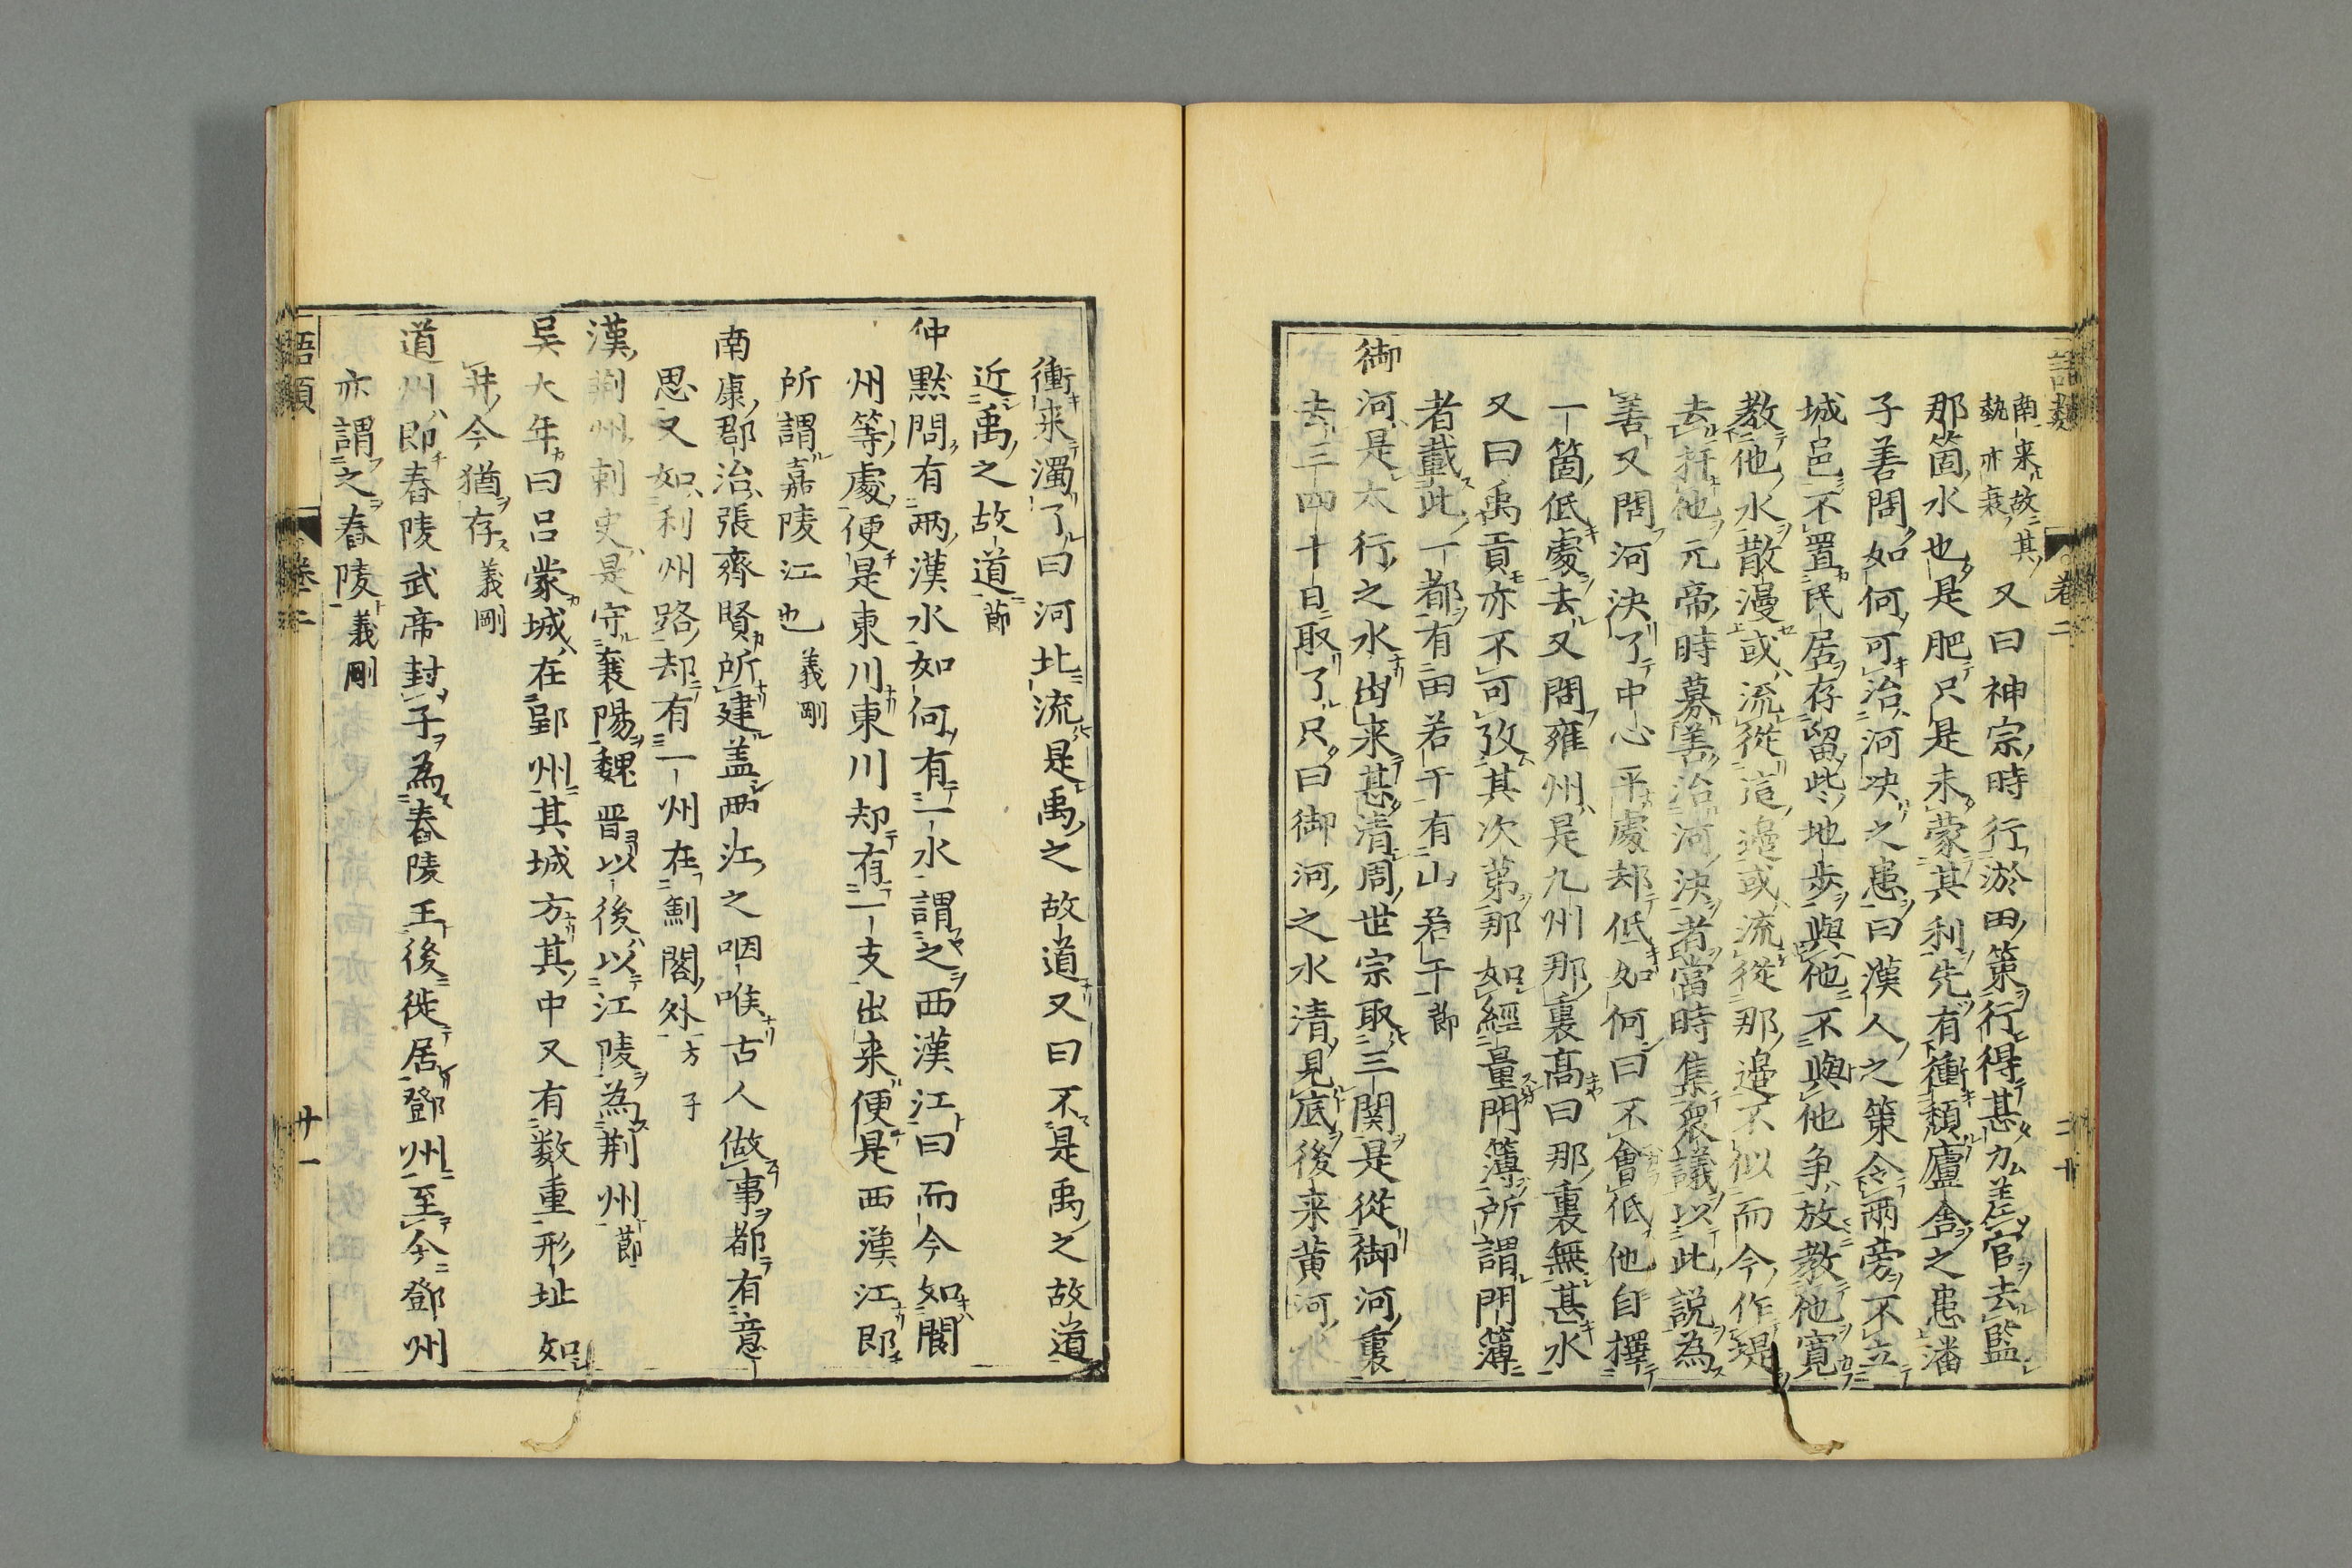 語類 卷二 二十
南來故其
勢亦衰 又曰神宗時行淤田策行得甚力差官去監
那箇水也是肥只是未蒙其利先有衝頽廬舍之患潘
子善問如何可治河决之患曰漢人之策令兩旁不立
城邑不置民居存留些地步與他不與他争放教他寛
教他水散漫或流從這邉或流從那邉不似而今作堤
去扞他元帝時募善治河决者當時集衆議以此説為
善又問河决了中心平處却低如何曰不會低他自擇
一箇低處去又問雍州是九州那裏高曰那裏無甚水
又曰禹貢亦不可攷其次第那如經量門簿所謂門簿
者載此一都有田若干有山若干節
御河是太行之水出來甚清周世宗取三關是從御河裏
去三四十日取了只曰御河之水清見底後来黄河水
衝来濁了曰河北流是禹之故道又曰不是禹之故道
近禹之故道節
仲默問有兩漢水如何有一水謂之西漢江曰而今如閬
州等處便是東川東川却有一支出来便是西漢江郎
所謂嘉陵江也義剛
南康郡治張齊賢所建盖兩江之咽喉古人做事都有意
思又如利州路却有一州在劍閣外方子
漢荆州刺史是守襄陽魏晋以後以江陵為荆州節
吴大年曰呂蒙城在郢州其城方其中又有数重形址如
井今猶存義剛
道州即舂陵武帝封子為舂陵王後徙居鄧州至今鄧州
亦謂之舂陵義剛
語類 卷二 廿一